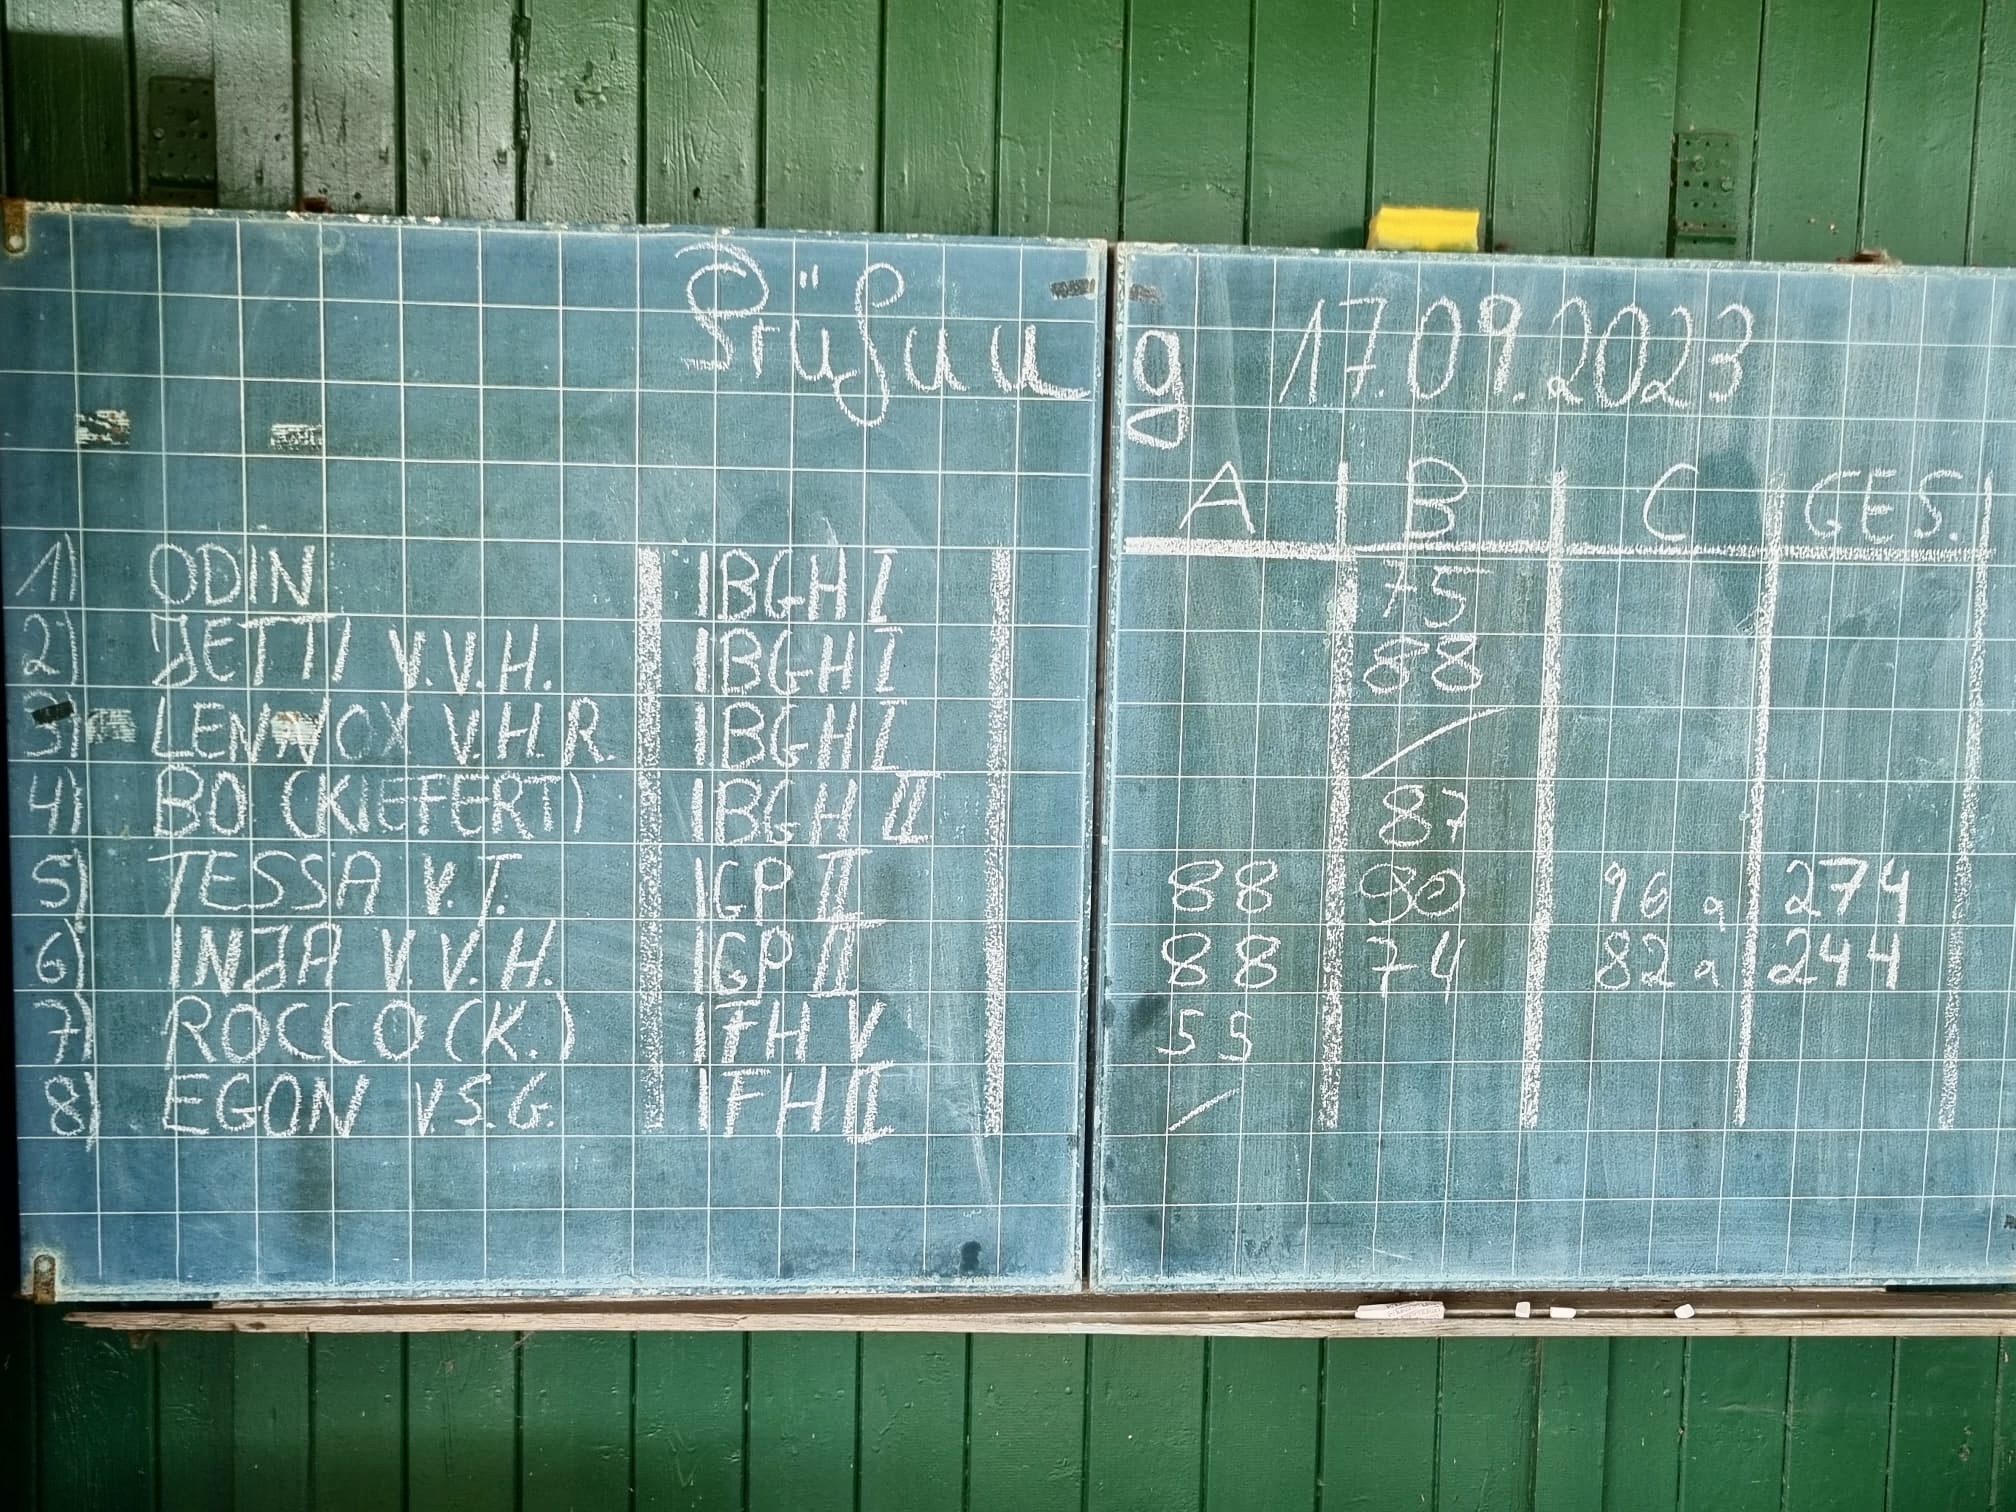 Prüfung 17.09.2023
A B C GES.
1) ODIN IBGH I 75
2) JETTI V.V.H. IBGH I 88
3) LENNOX V.H.R. IBGH I /
4) BO (KIEFERT) IBGH II 87
5) TESSA V.T. IGP II 88 90 96 a 274
6) INJA V.V.H. IGP II 88 74 82 a 244
7) ROCCO (K.) IFH V 55
8) EGON V.S.G. IFH II /